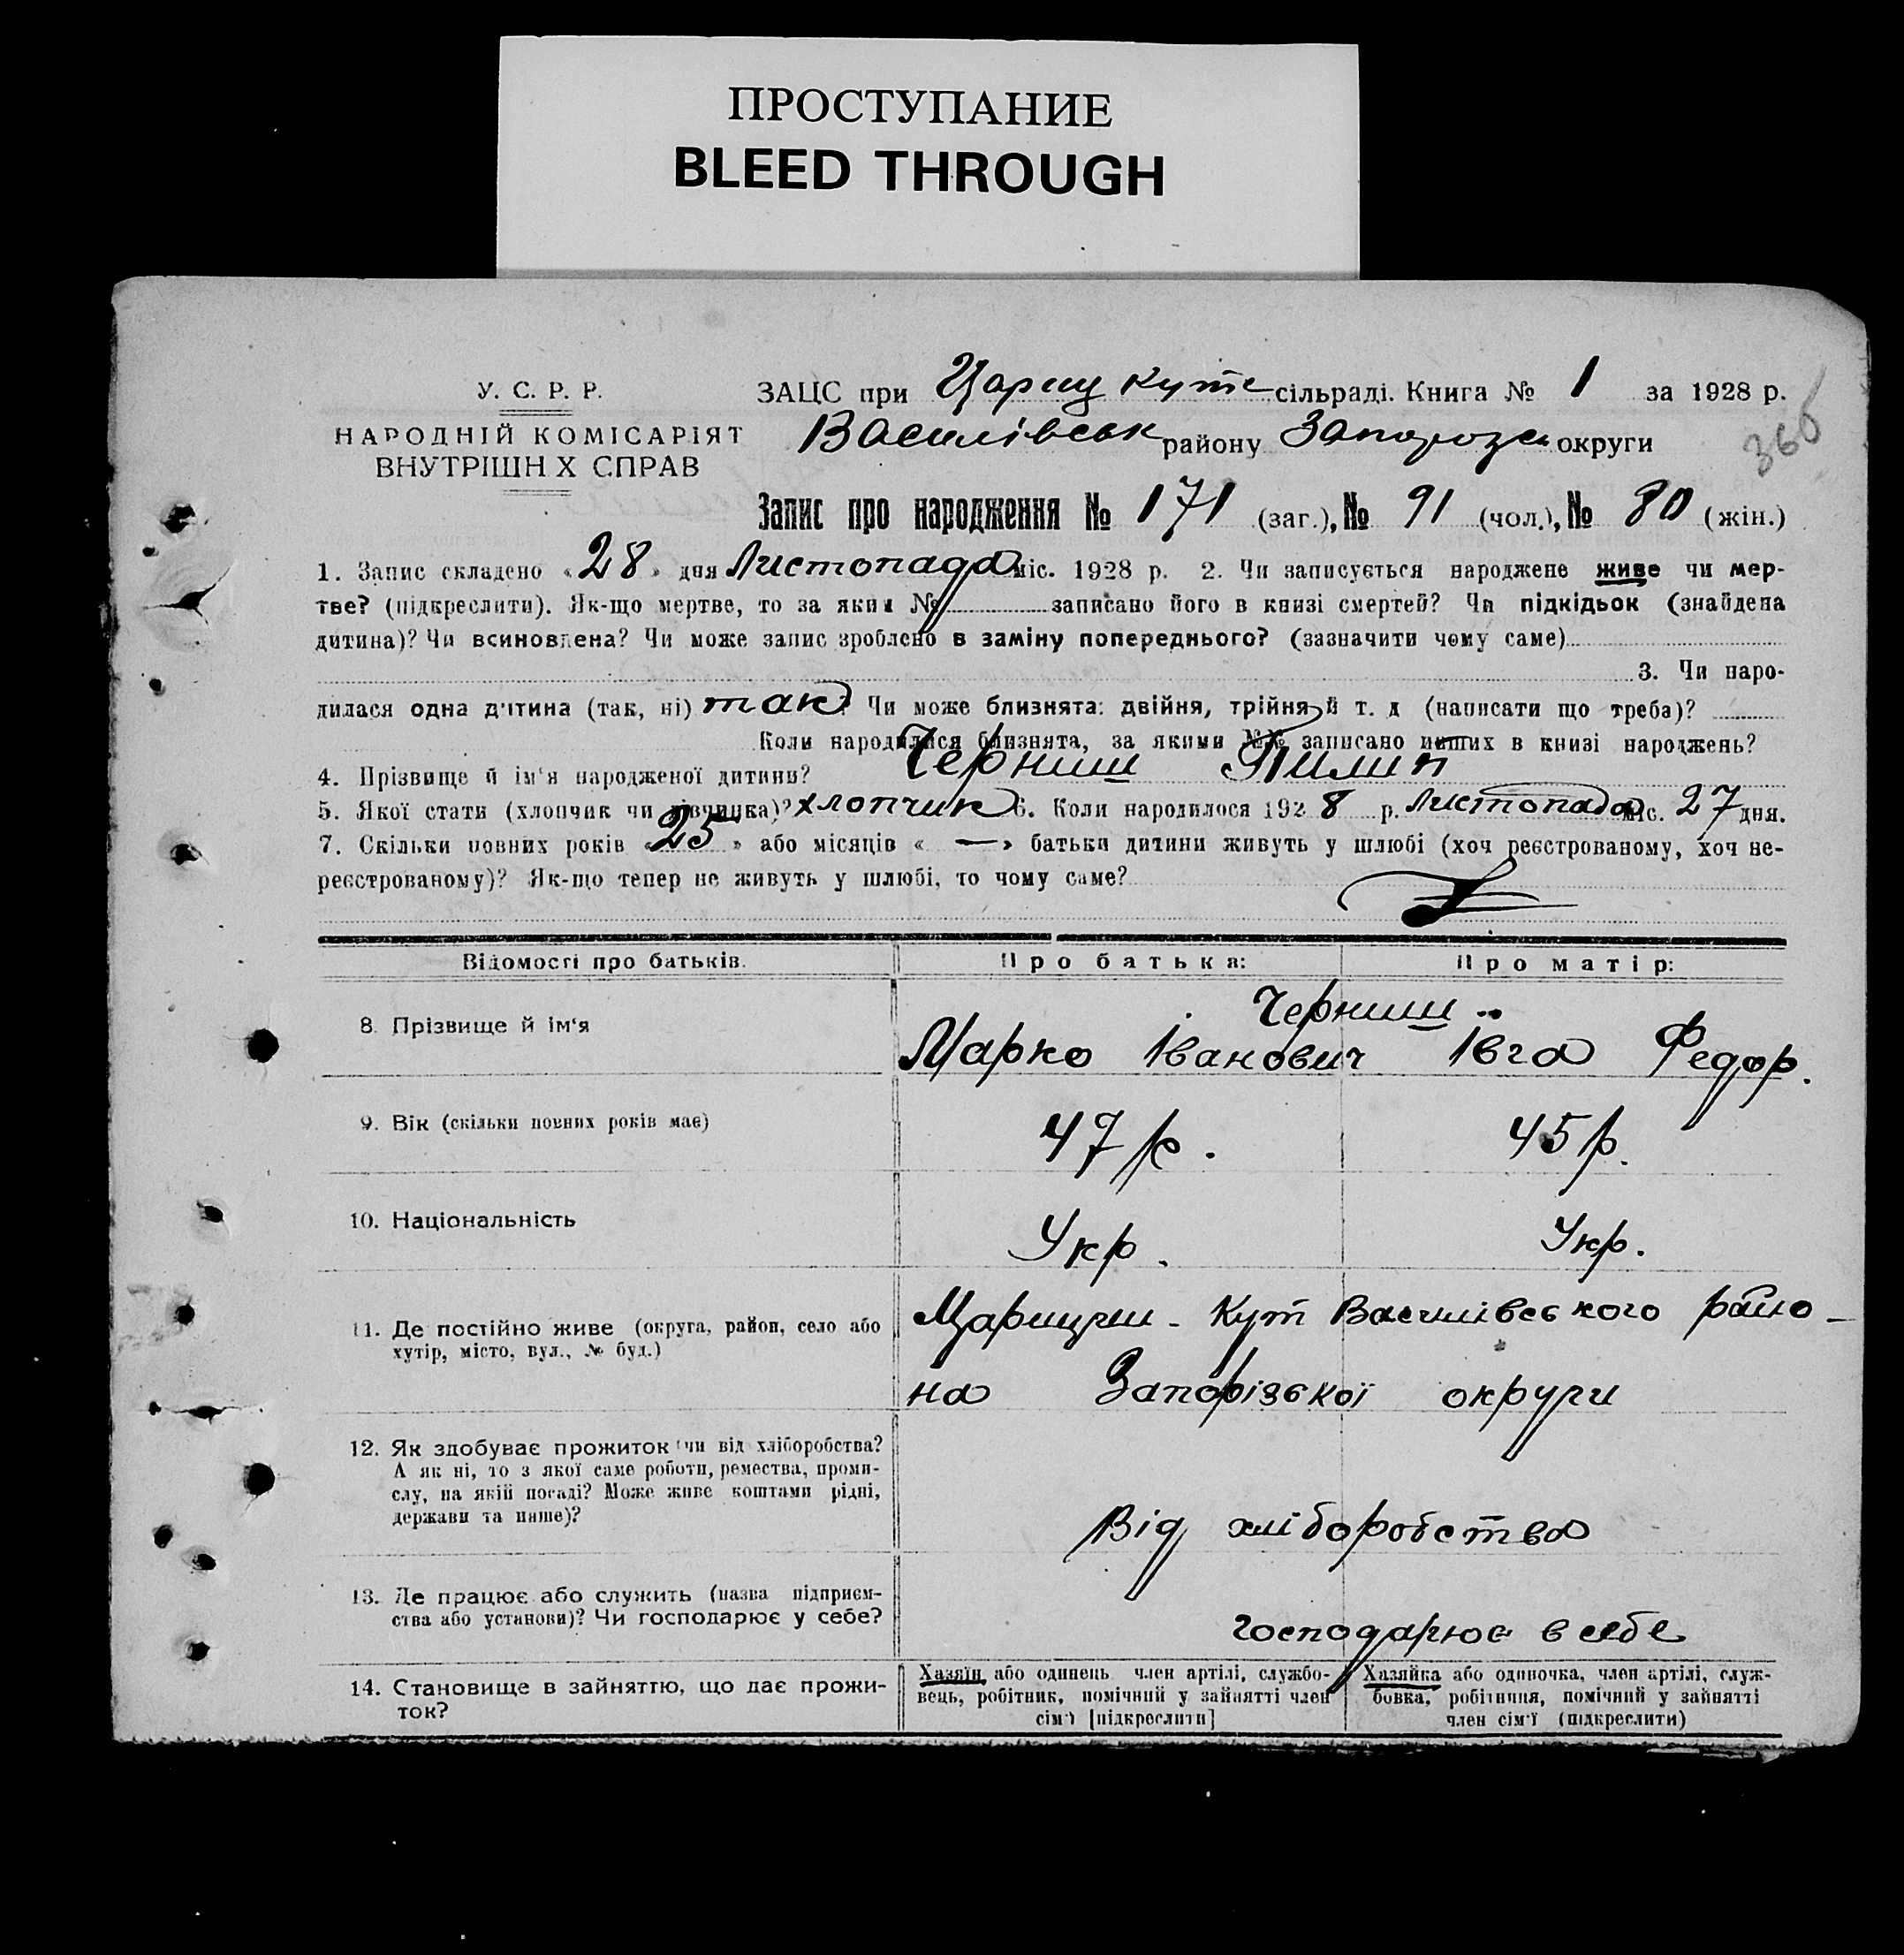 ПРОСТУПАНИЕ
BLEED THROUGH
У. С. Р. Р.
НАРОДНІЙ КОМІСАРІЯТ
ВНУТРІШН Х СПРАВ
ЗАЦС при Цариц Куте сільраді. Книга № 1 за 1928 р.
Василівськ району Запорозь округи
366
Запис про народження № 171 (заг.), № 91 (чол.), № 80 (жін.)
1. Запис складено «28» дня Листопада міс. 1928 р. 2. Чи записується народжене живе чи мер-
тве? (підкреслити). Як-що мертве, то за яким № записано його в книзі смертей? Чи підкідьок (знайдена
дитина)? Чи всиновлена? Чи може запис зроблено в заміну попереднього? (зазначити чому саме)
3. Чи наро-
дилася одна дитина (так, ні) так? Чи може близнята: двійня, трійня й т. д (написати що треба)?
Коли народилися близнята, за якими №№ записано инших в книзі народжень?
4. Прізвище й ім‘я народженої дитини? Черниш Пилип
5. Якої стати (хлопчик чи дівчинка)? хлопчик 6. Коли народилося 1928 р. Листопада міс. 27 дня.
7. Скільки повних років «25» або місяців « — » батьки дитини живуть у шлюбі (хоч реєстрованому, хоч не-
реєстрованому)? Як-що тепер не живуть у шлюбі, то чому саме?
Відомості про батьків.
Про батька:
Про матір:
8. Прізвище й ім‘я
Черниш
Марко Іванович Івга Федор.
9. Вік (скільки повних років має)
47 р.
45 р.
10. Національність
Укр.
Укр.
11. Де постійно живе (округа, район, село або
хутір, місто, вул., № буд.)
Царицин - Кут Василівського райо-
на Запорізької округи
12. Як здобуває прожиток чи від хліборобства?
А як ні, то з якої саме роботи, ремества, проми-
слу, на якій посаді? Може живе коштами рідні,
держави та инше)?
Від хліборобства
13. Де працює або служить (назва підприєм-
ства або установи)? Чи господарює у себе?
господарює в себе
14. Становище в зайняттю, що дає прожи-
ток?
Хазяїн або одинець член артілі, службо-
вець, робітник, помічний у зайнятті член
сім‘ї [підкреслити]
Хазяйка або одиночка, член артілі, служ-
бовка, робітниця, помічний у зайнятті
член сім‘ї (підкреслити)